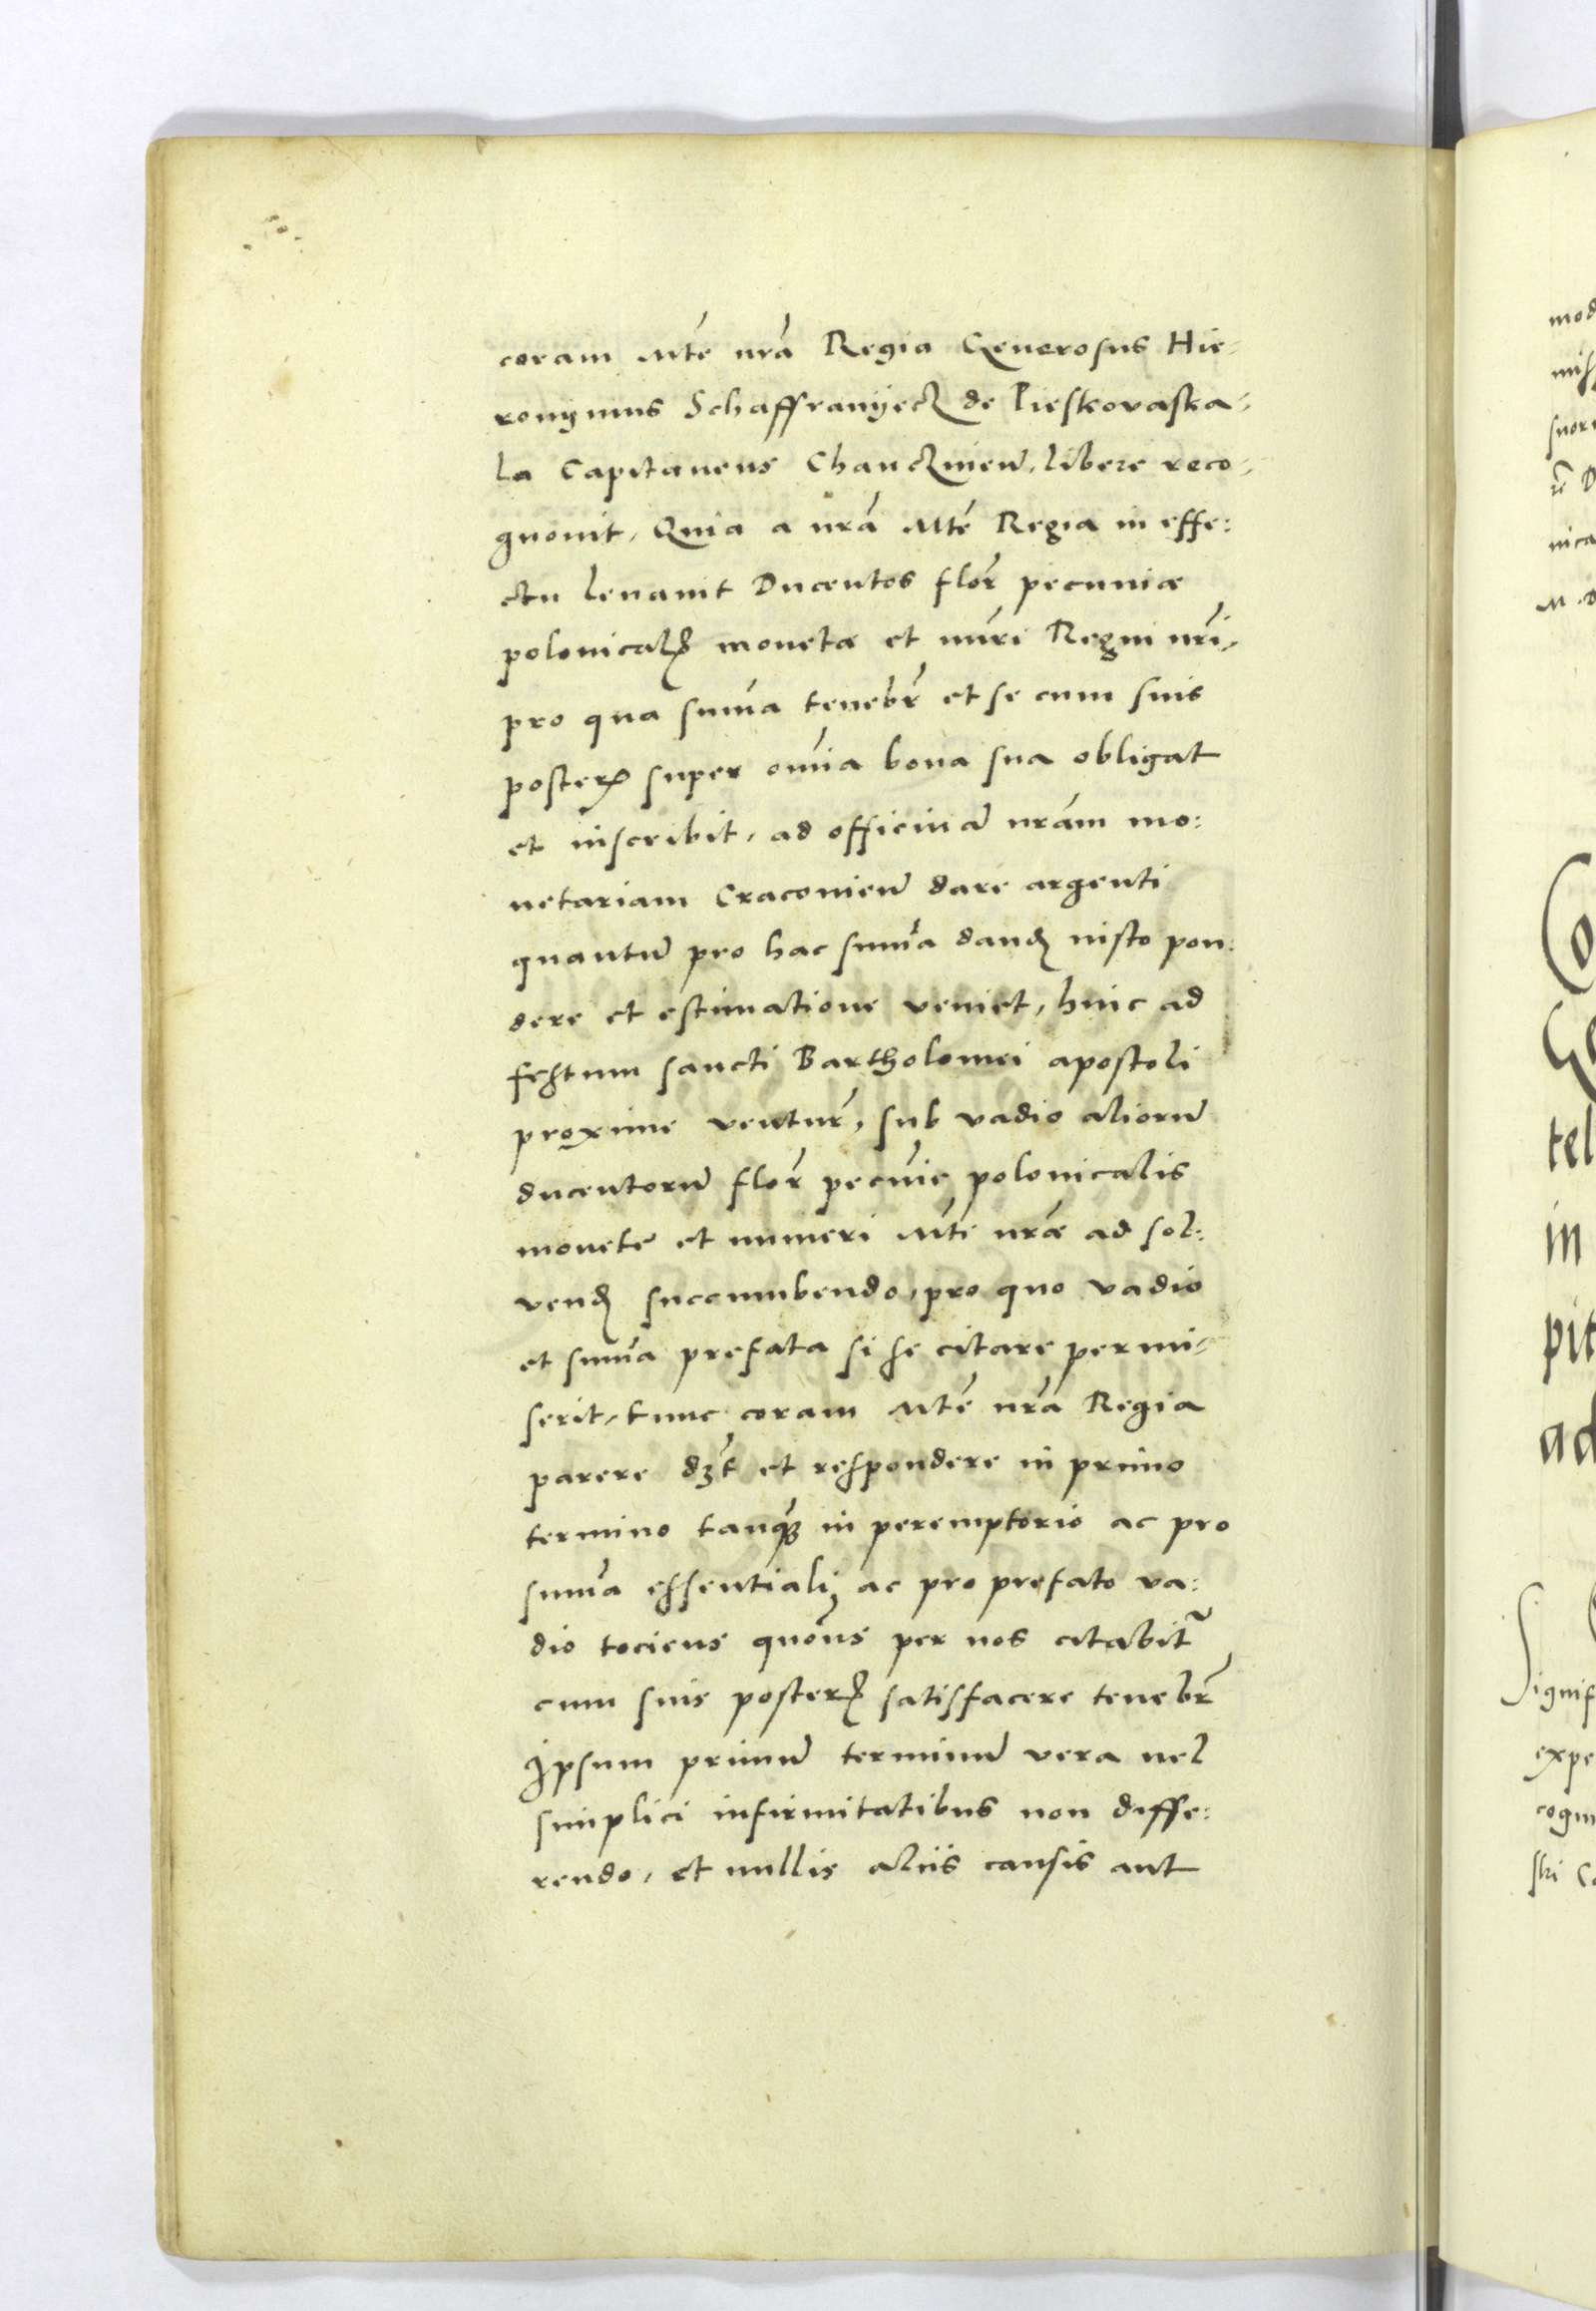 coram Mte nrã Regia Generosus Hie-
ronymus Schaffranyecz de Pieskovaska-
la Capitaneus Chanczinień. libere reco-
gnovit, Quia a nrã Mte Regia in effe:
ctu levavit Ducentos flor̃ pecuniæ
polonicalꝭ monetæ et nũri Regni nrĩ,
pro qua sum̃a tenebr̃ et se cum suis
posterꝭ super om̃ia bona sua obligat
et inscribit, ad officinã nrãm mo:
netariam Cracovień dare argenti
quantũ pro hac sum̃a dandꝭ iusto pon:
dere et estimatione veniet, hinc ad
festum sancti Bartholomei apostoli
proxime ventur̃, sub vadio aliorũ
ducentorũ flor̃ pecũie polonicalis
monete et numeri Mti nræ ad sol:
vendꝭ succumbendo, pro quo vadio
et sum̃a prefata si se citare permi-
serit, tunc coram Mte nrã Regia
parere dꝫt et respondere in primo
termino tanqꝫ in peremptorio ac pro
sum̃a essentiali, ac pro prefato va:
dio tociens quoc̃ns per nos citabit̃
cum suis posterꝭ satisfacere tenebr̃
Ipsum primũ terminũ vera uel
simplici infirmitatibus non diffe:
rendo, et nullis aliis causis aut
mod
nica
Co
Ge
tel
in
pit
ad
Signif
expe
cogn
ski Ca